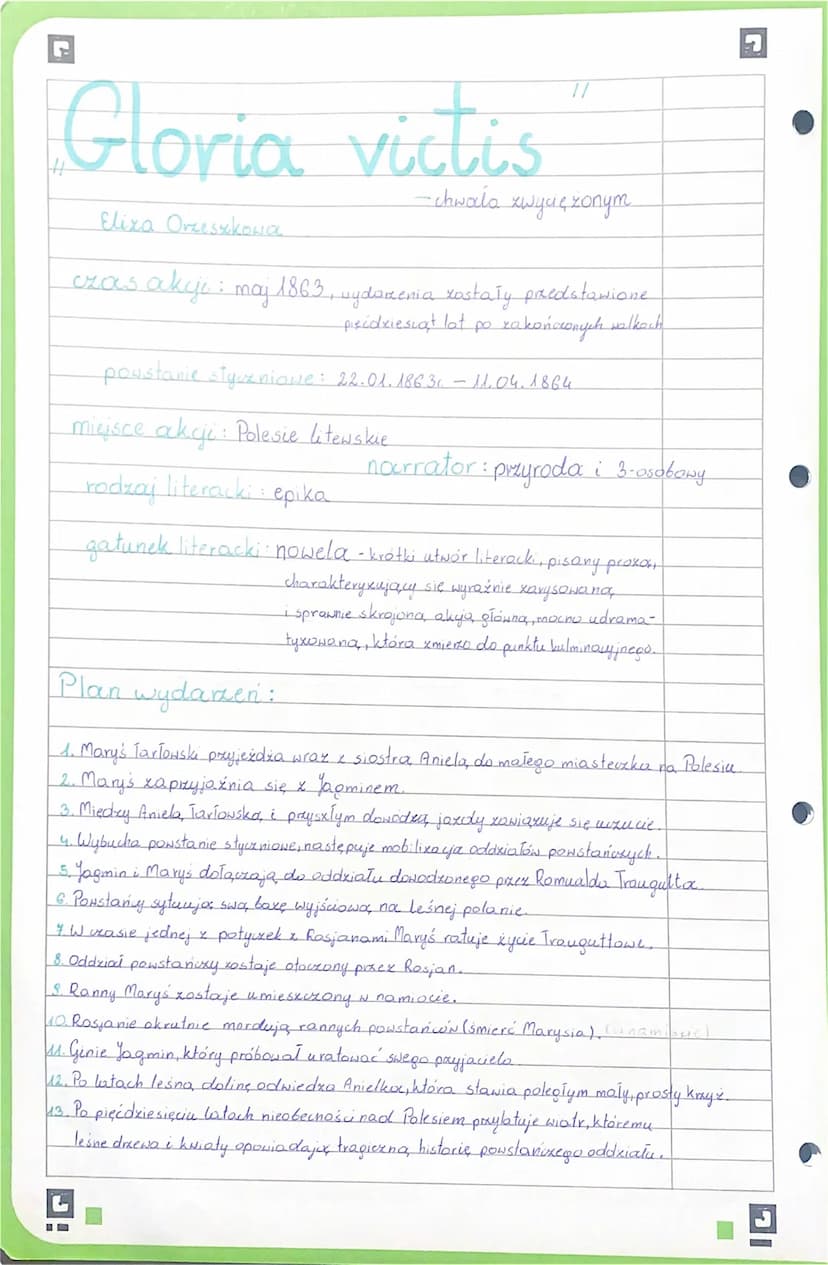 "Gloria victis"
- chwała zwyciężonym
Eliza Orzeszkowa
czas akcji: maj 1863, wydarzenia zostały przedstawione
pięćdziesiąt lat po zakończonych walkach
powstanie styczniowe: 22.01.1863r. - 11.04.1864
miejsce akcji: Polesie litewskie
narrator: przyroda i 3-osobowy
rodzaj literacki: epika
gatunek literacki: nowela - krótki utwór literacki, pisany prozą,
charakteryzujący się wyraźnie zarysowaną
i sprawnie skrojoną akcją główną, mocno udrama-
tyzowaną, która zmierza do punktu kulminacyjnego.
Plan wydarzeń:
1. Maryś Tarłowski przyjeżdża wraz z siostrą Anielą do małego miasteczka na Polesiu.
2. Maryś zaprzyjaźnia się z Jagminem.
3. Między Anielą Tarłowską i przyszłym dowódcą jazdy zawiązuje się uczucie.
4. Wybucha powstanie styczniowe, następuje mobilizacja oddziałów powstańczych.
5. Jagmin i Maryś dołączają do oddziału dowodzonego przez Romualda Traugutta.
6. Powstańcy sytuują swą bazę wyjściową na leśnej polanie.
7. W czasie jednej z potyczek z Rosjanami Maryś ratuje życie Trauguttowi.
8. Oddział powstańczy zostaje otoczony przez Rosjan.
9. Ranny Maryś zostaje umieszczony w namiocie.
10. Rosjanie okrutnie mordują rannych powstańców (śmierć Marysia).
11. Ginie Jagmin, który próbował uratować swego przyjaciela.
12. Po latach leśną dolinę odwiedza Anielka, która stawia poległym mały, prosty krzyż.
13. Po pięćdziesięciu latach nieobecności nad Polesiem przylatuje wiatr, któremu
leśne drzewa i kwiaty opowiadają tragiczną historię powstańczego oddziału.